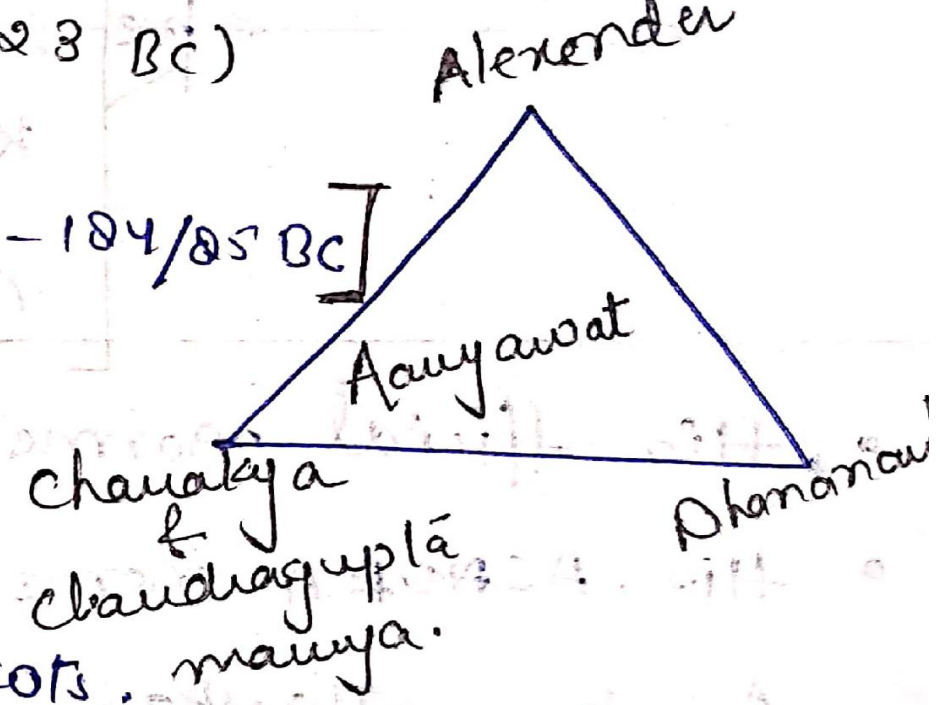 23 BC)
Alexander
- 184/85 BC]
Aauyawat
Chanakya
&
Chandragupta
maurya.
Dhananand